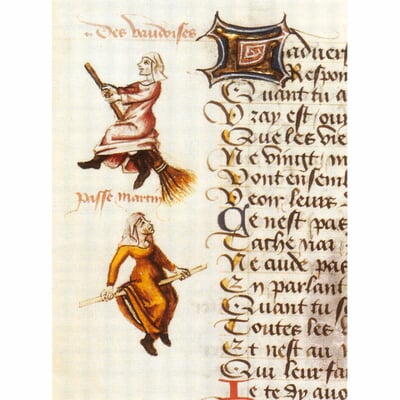 Des vaudoises
L aduers
Respon
Quant tu a
Vray est ouy
Que les vie
Ne vingt m
Vont ensemb
passe martin
Veoir leurs
Ce nest pas
Tache nai
Ne aude pas
En parlant
Quant tu
Toutes les
Et nest au
Qui leur fa
Ie te dy quo